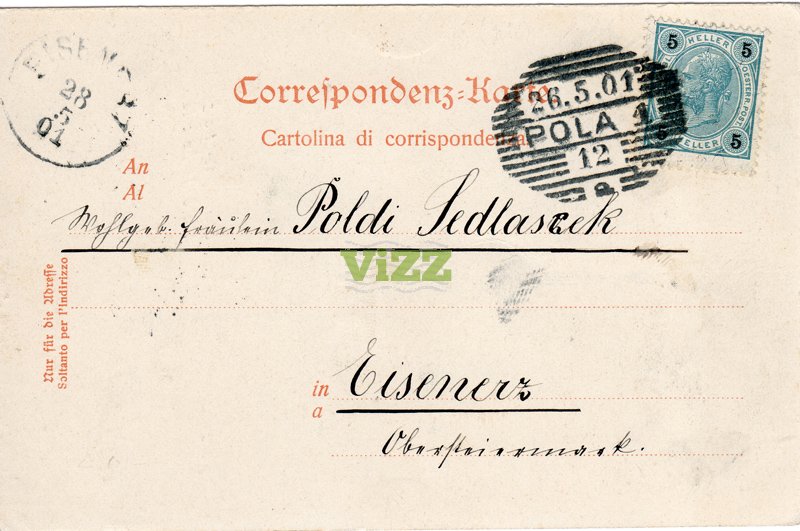 Correspondenz-Karte
Cartolina di corrispondenza
An
Al
Wohlgeb. Fräulein Poldi Sedlaczek
in Eisenerz
a
Obersteiermark.
Nur für die Adresse
Soltanto per l'Indirizzo
28
5
01
26.5.01
POLA 1
12
5 HELLER 5
OESTERR. POST
5 HELLER 5
ViZZ